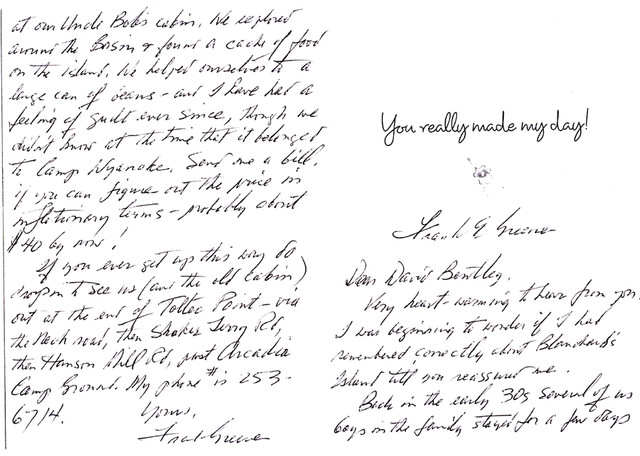 at our Uncle Bob's cabin. We explored
around the Basin & found a cache of food
on the island. We helped ourselves to a
large can of beans - and I have had a
feeling of guilt ever since, though we
didn't know at the time that it belonged
to Camp Wyanoke. Send me a bill,
if you can figure out the price in
inflationary terms - probably about
$40 by now!
If you ever get up this way do
drop in to see us (and the old cabin)
out at the end of Toltec Point - via
the Neck road, then Shakes Ferry Rd,
then Hanson Mill Rd, past Arcadia
Camp Ground. My phone # is 253-
6714.
Yours,
Frank Greene
You really made my day!
Frank G Greene
Dear David Bentley,
Very heart-warming to have from you.
I was beginning to wonder if I had
remembered correctly about Blanchard's
Island till you reassured me.
Back in the early 30s several of us
boys in the family stayed for a few days